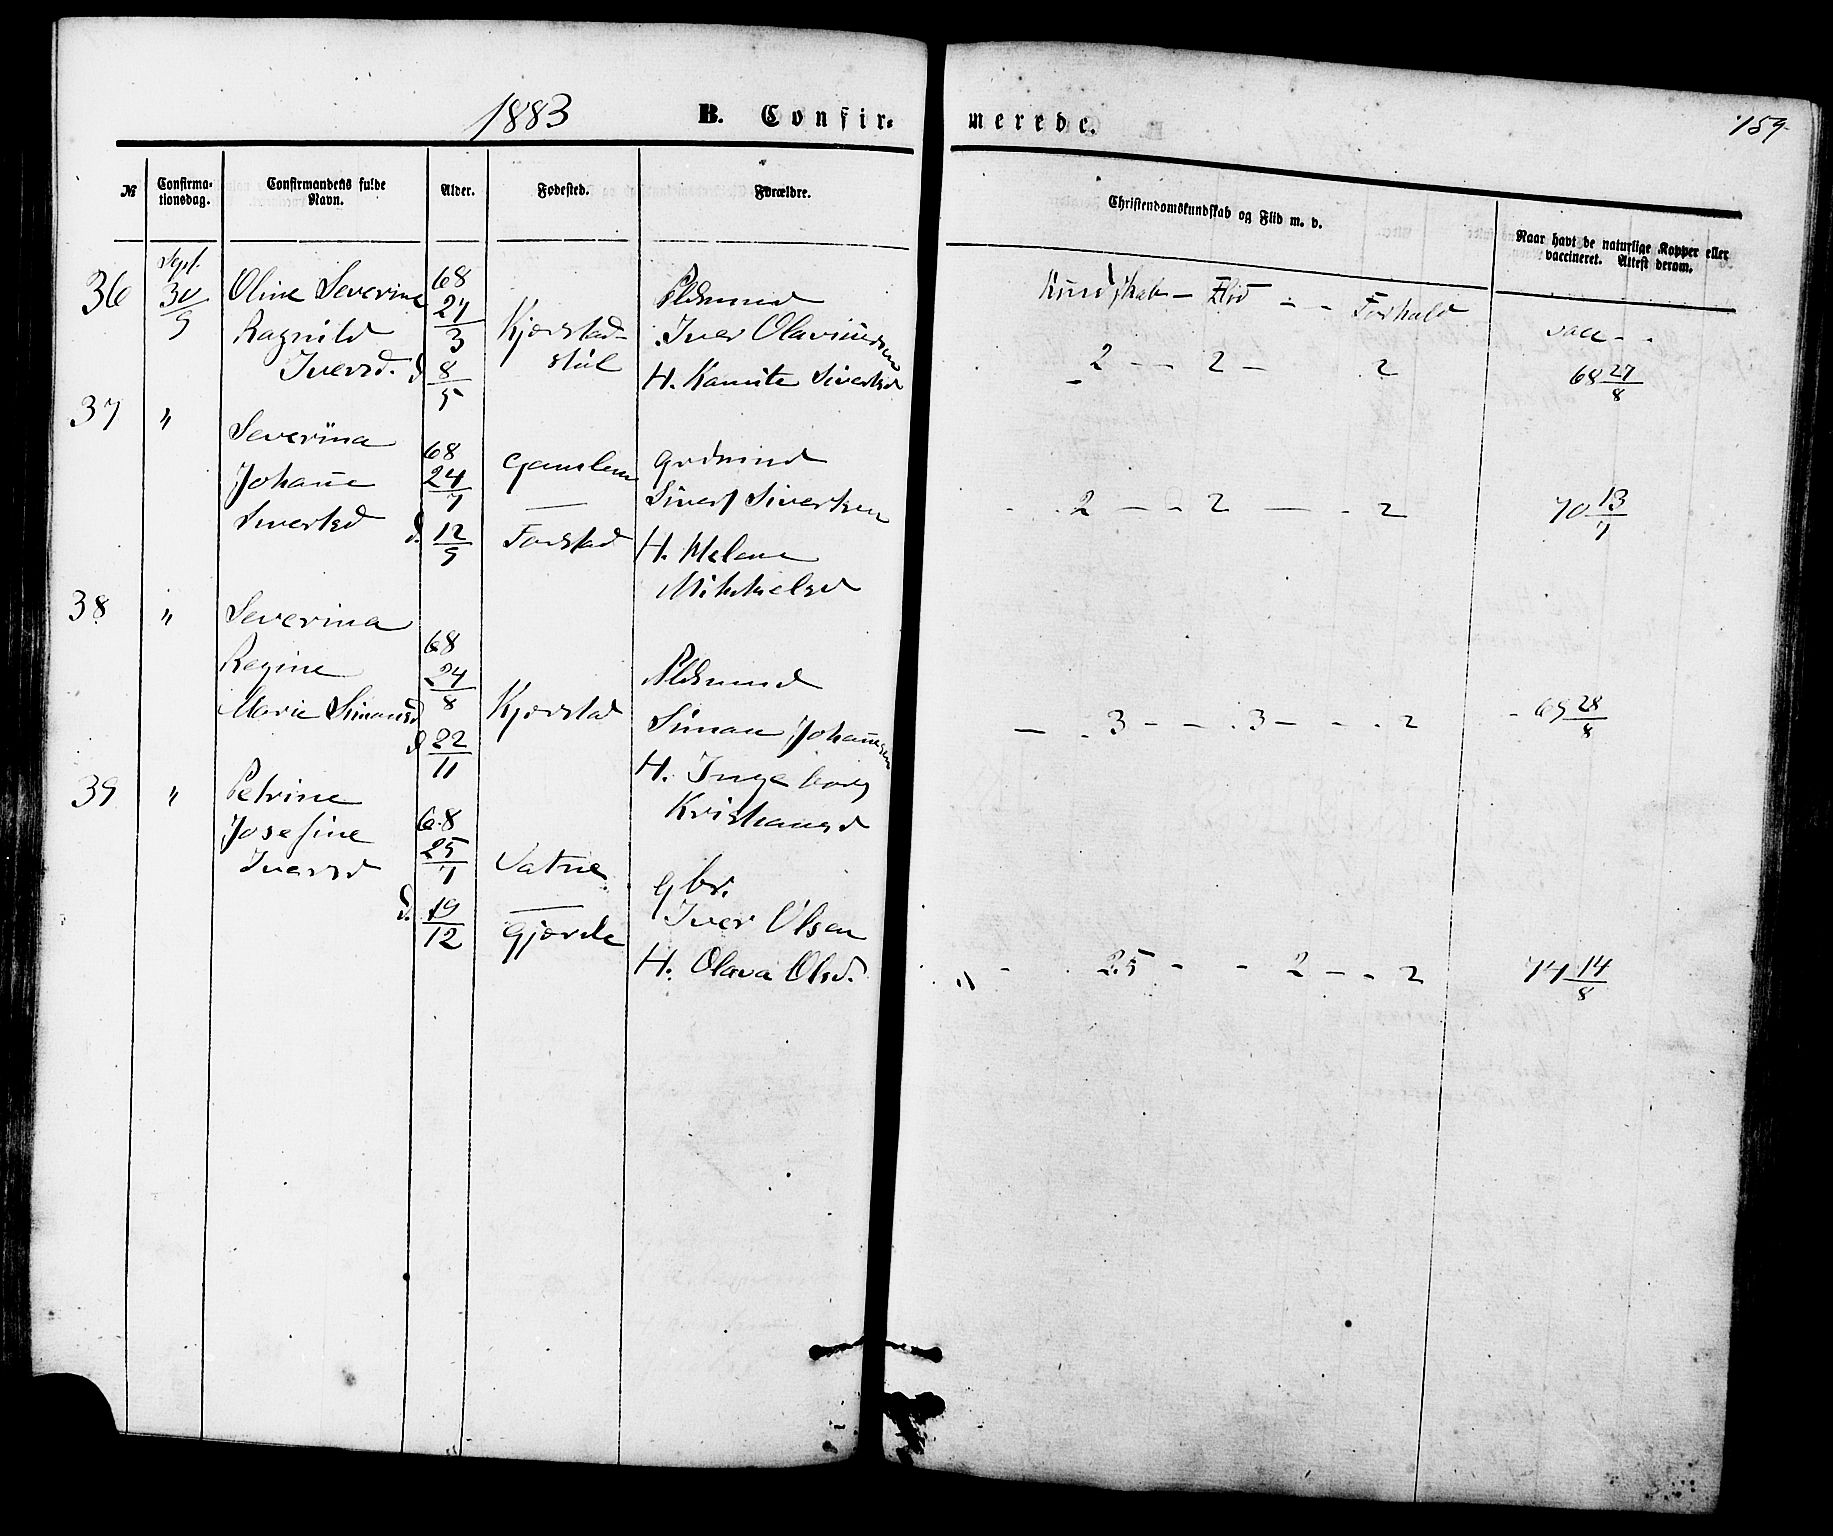 1883
B. Confir-
merede.
159.
№
Confirma-
tionsdag.
Confirmandens fulde
Navn.
Alder.
Fødested.
Forældre.
Christendomskundskab og Flid m. v.
Naar havt de naturlige Kopper eller
vaccineret. Attest derom.
36
Sept.
30/9
Oline Severine
Ragnild
Iversd.
68
27/3
d 8/5
Kjørstad-
støl
Pldsmand
Iver Olaviusen
H. Kanute Sivertsd.
Kundskab – Flid – – Forhold
2 – – 2 – 2
vacc – –
68 27/8
37
"
Severina
Johanne
Sivertsd
68
24/7
d. 12/9
Gamlem
—
Forstad
Grdmnd
Sivert Sivertsen
H. Melene
Mikkelsd
2 – 2 – 2
70 13/7
38
"
Severina
Regine
Marie Simonsd
68
24/8
d 22/11
Kjørstad
Pldsmand
Simon Johannesen
H. Ingeborg
Kristiansd
3 – – 3 – – 2
69 28/8
39
"
Petrine
Josefine
Iversd
68
25/7
d. 19/12
Vatne
—
Gjørde
gbr.
Iver Olsen
H. Olava Olsd.
2.5 – – 2 – – 2
74 14/8